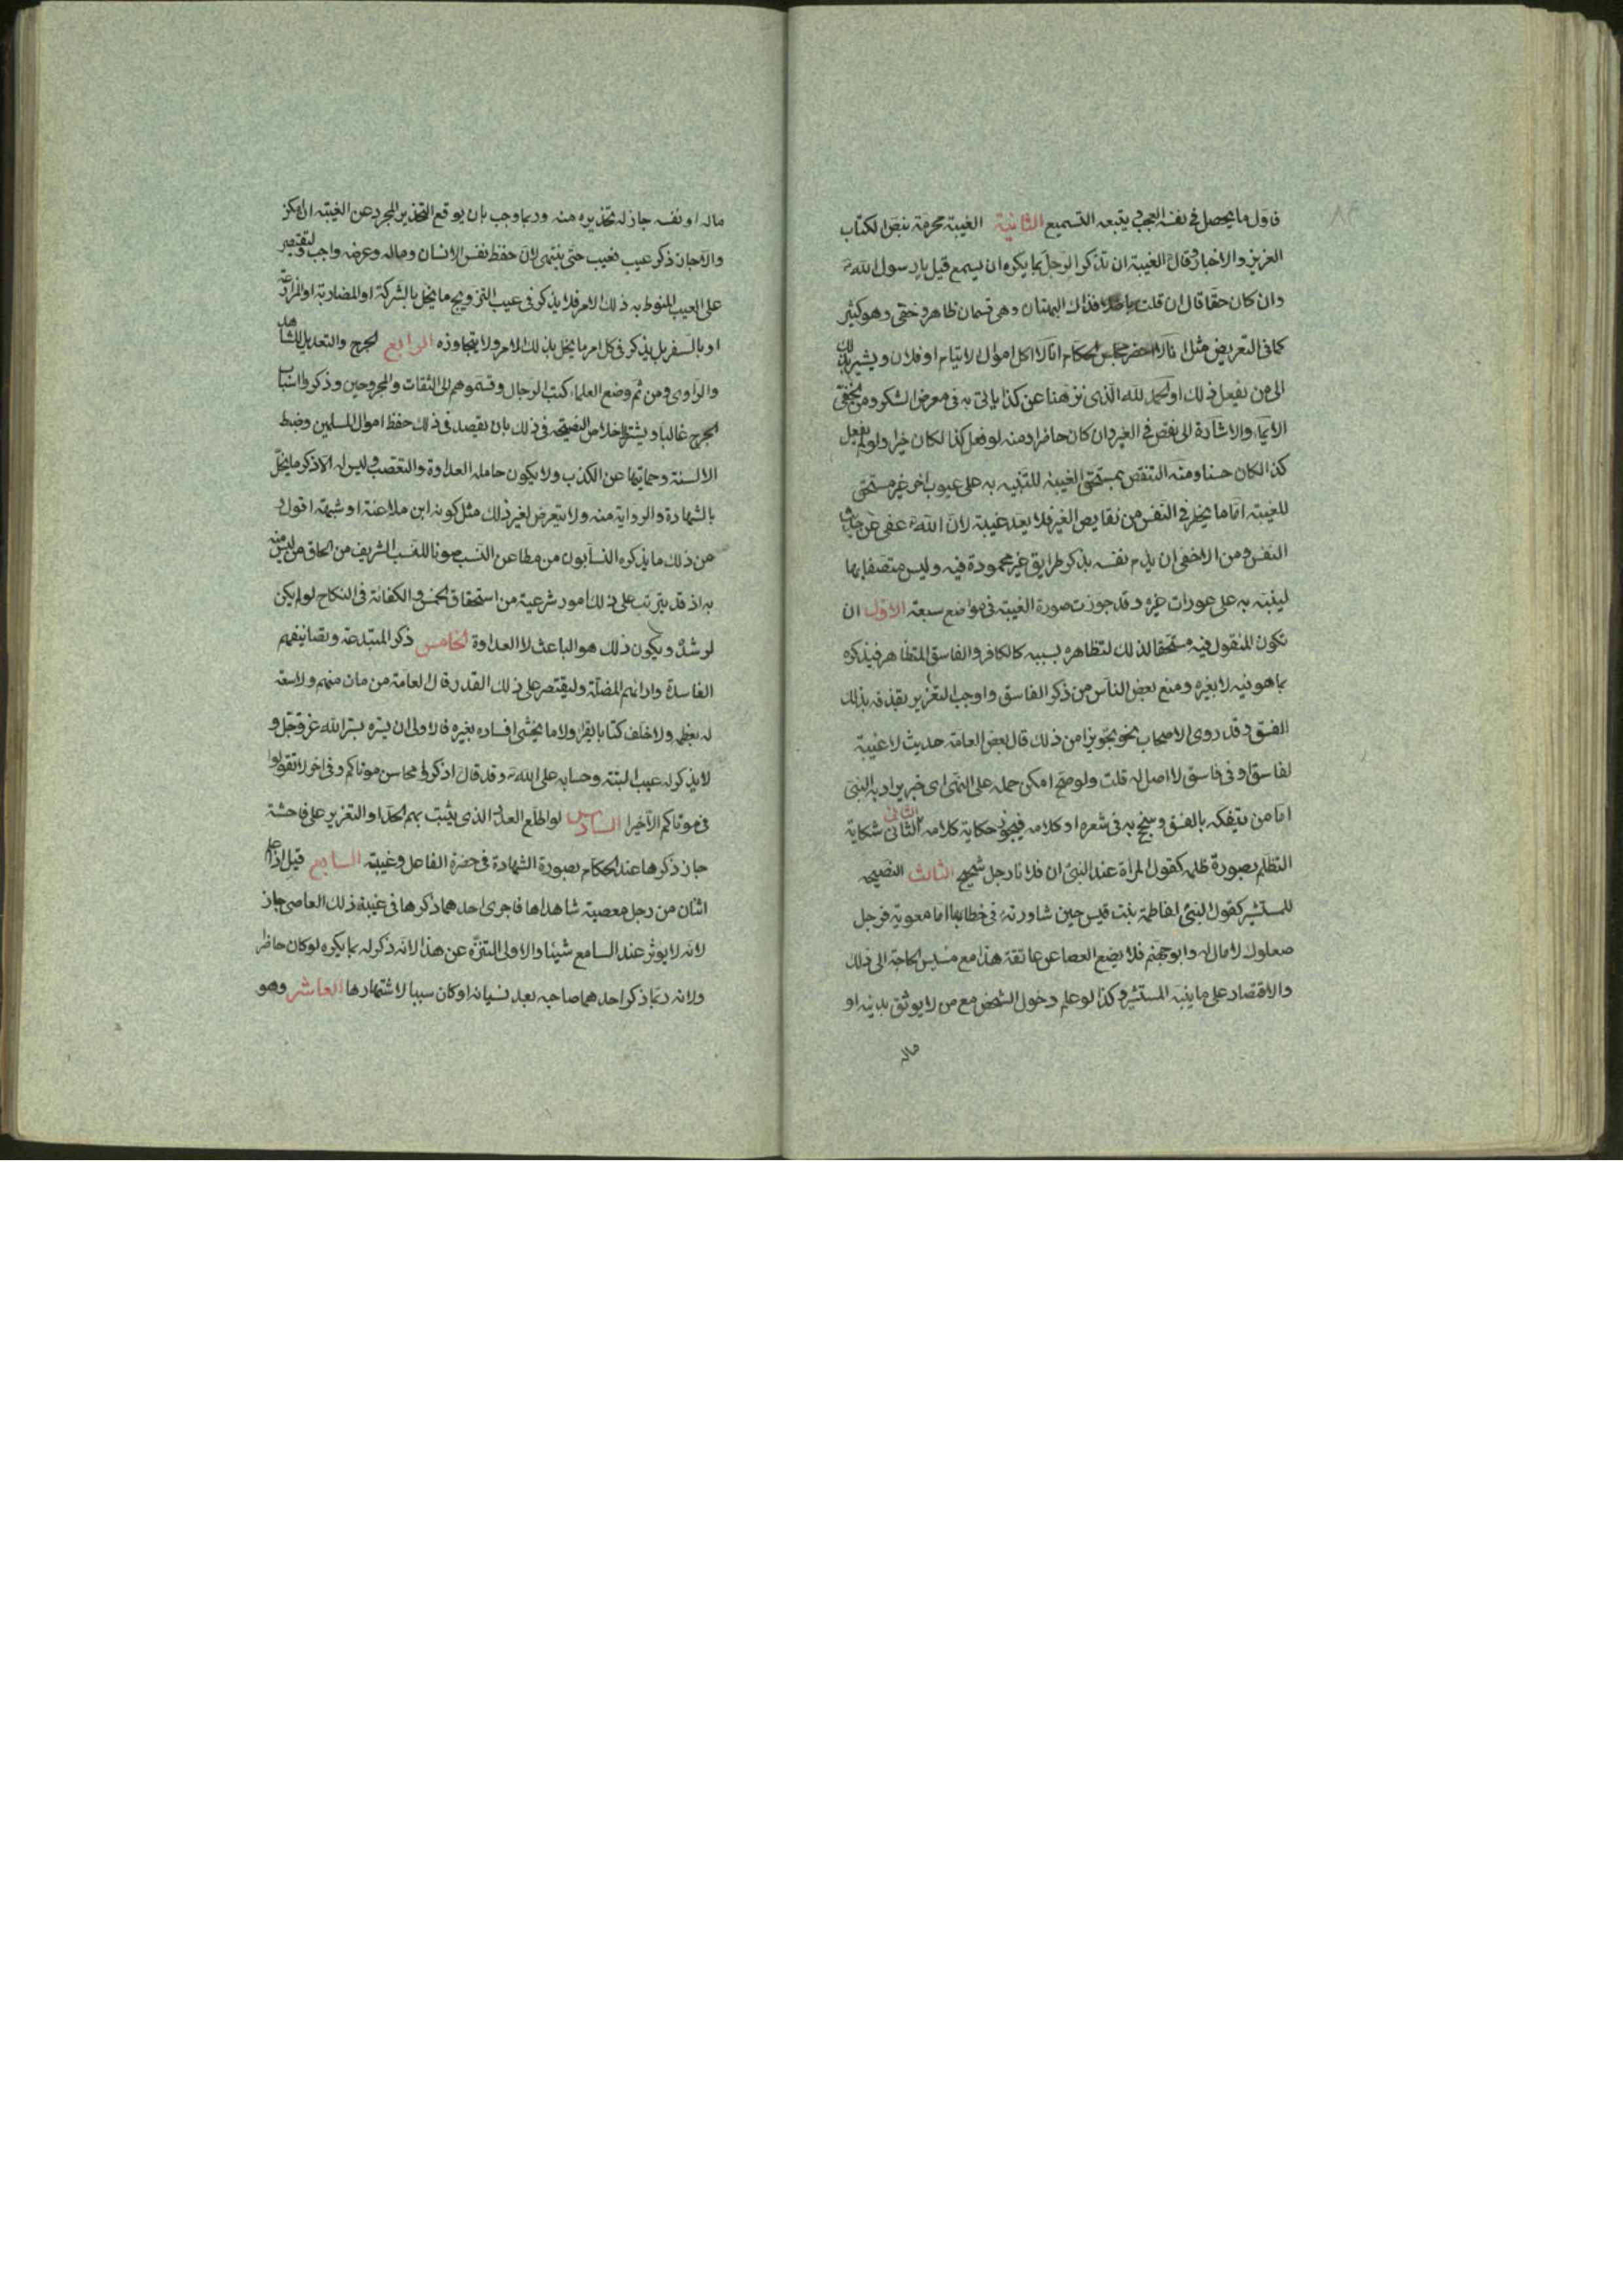 فاول ما يحصل فى نفسه العجب ويتبعه التسميع الثانية الغيبة محرمة بنص الكتاب
العزيز والاخبار وقال الغيبة ان تذكر الرجل بما يكره ان يسمع قيل يا رسول الله
وان كان حقا قال ان قلت باطلا فذاك البهتان وهى قسمان ظاهر وخفى وهو كثير
كما فى التعريض مثل انا لا احضر مجلس الحكام انا لا اكل اموال الايتام او فلان ويشير بذلك
الى من يفعل ذلك او الحمد لله الذى نزهنا عن كذا ياتى به فى معرض الشكر ومن الخفى
الايماء والاشارة الى نقص فى الغير وان كان حاضرا ومنه لو فعل كذا لكان خيرا ولو لم يفعل
كذا لكان حسنا ومنه التنقص بمستحق الغيبة للتنبيه به على عيوب اخر غير مستحق
للغيبة اما ما يخطر فى النفس من نقايص الغير فلا يعد غيبة لان الله عفى عن حديث
النفس ومن الاخفى ان يذم نفسه بذكر طرايق غير محمودة فيه وليس متصفا بها
لينبه به على عورات غيره وقد جوزت صورة الغيبة فى مواضع سبعة الاول ان
تكون المقول فيه مستحقا لذلك لتظاهره بسببه كالكافر والفاسق المتظاهر فيذكره
بما هو فيه لا بغيره ومنع بعض الناس من ذكر الفاسق واوجب التعزير بقذفه بذلك
الفسق وقد روى الاصحاب نحو تجويز من ذلك قال بعض العامة حديث لا غيبة
لفاسق او فى فاسق لا اصل له قلت ولو صح امكن حمله على النهى اى خبر يراد به النهى
اما من يتفكه بالفسق ويتبجح به فى شعره او كلامه فيجوز حكاية كلامه الثانى الثانى شكاية
التظلم بصورة ظلمه كقول المراة عند النبى ان فلانا رجل شحيح الثالث النصيحة
للمستشير كقول النبى لفاطمة بنت قيس حين شاورته فى خطابها اما معوية فرجل
صعلوك لا مال له وابو جهم فلا يضع العصا عن عاتقه هذا مع مسيس الحاجة الى ذلك
والاقتصار على ما ينبه المستشير وكذا لو علم دخول الشخص مع من لا يوثق بدينه او
ماله
ماله او نفسه جاز له تحذيره منه وربما وجب بان يوقع التحذير المجرد عن الغيبة ان امكن
والا جاز ذكر عيب فعيب حتى ينتهى لان حفظ نفس الانسان وماله وعرضه واجب وليقتصر
على العيب المنوط به ذلك الامر فلا يذكر فى عيب التزويج ما يخل بالشركة او المضاربة او المزارعة
او بالسفر بل يذكر فى كل امر ما يخل بذلك الامر ولا يتجاوزه الرابع الجرح والتعديل للشاهد
والراوى ومن ثم وضع العلماء كتب الرجال وقسموهم الى الثقات والمجروحين وذكروا اسباب
الجرح غالبا ويشترط اخلاص النصيحة فى ذلك بان يقصد فى ذلك حفظ اموال المسلمين وضبط
الالسنة وحمايتها عن الكذب ولا يكون حامله العداوة والتعصب وليس له الا ذكر ما يخل
بالشهادة والرواية منه ولا يتعرض لغير ذلك مثل كونه ابن ملاعنة او شبهة اقول و
من ذلك ما يذكره النسابون من مطاعن النسب صونا للنسب الشريف من الحاق من ليس منه
به اذ قد يترتب على ذلك امور شرعية من استحقاق الخمس والكفائة فى النكاح لو لم يكن
لو شذ ويكون ذلك هو الباعث لا العداوة الخامس ذكر المبتدعة وتصانيفهم
الفاسدة وارائهم المضلة وليقتصر على ذلك القدر قال العامة من مات منهم ولا شيعة
له تعظمه ولا خلف كتابا يقرا ولا ما يخشى افساده بغيره فالاولى ان يستر بستر الله عز وجل و
لا يذكر له عيب البتة وحسابه على الله وقد قال اذكروا محاسن موتاكم وفى اخر لا تقولوا
فى موتاكم الا خيرا السادس لو اطلع العدد الذى يثبت بهم الحد او التعزير على فاحشة
جاز ذكرها عند الحكام بصورة الشهادة فى حضرة الفاعل وغيبته السابع قيل اذا علم
اثنان من رجل معصية شاهداها فاجرى احدهما ذكرها فى غيبة ذلك العاصى جاز
لانه لا يوثر عند السامع شيئا والاولى التنزه عن هذا لانه ذكر له بما يكره لو كان حاضرا
ولانه ربما ذكر احدهما صاحبه بعد نسيانه او كان سببا لاشتهارها العاشر وهو